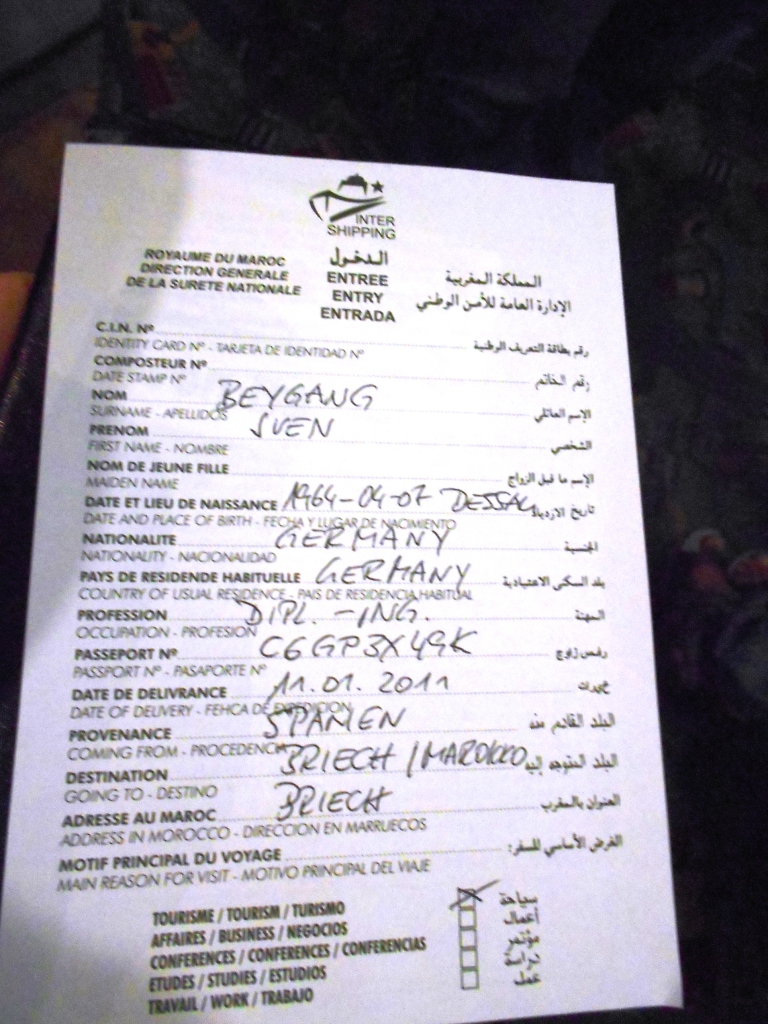 INTER
SHIPPING
ROYAUME DU MAROC
DIRECTION GENERALE
DE LA SURETE NATIONALE
الدخول
ENTREE
ENTRY
ENTRADA
المملكة المغربية
الإدارة العامة للأمن الوطني
C.I.N. Nº رقم بطاقة التعريف الوطنية
IDENTITY CARD Nº - TARJETA DE IDENTIDAD Nº
COMPOSTEUR Nº رقم الخاتم
DATE STAMP Nº
NOM BEYGANG الإسم العائلي
SURNAME - APELLIDOS
PRENOM SVEN الشخصي
FIRST NAME - NOMBRE
NOM DE JEUNE FILLE الإسم ما قبل الزواج
MAIDEN NAME
DATE ET LIEU DE NAISSANCE 1964-04-07 DESSAU تاريخ
DATE AND PLACE OF BIRTH - FECHA Y LUGAR DE NACIMIENTO
NATIONALITE GERMANY الجنسية
NATIONALITY - NACIONALIDAD
PAYS DE RESIDENDE HABITUELLE GERMANY بلد السكنى الاعتيادية
COUNTRY OF USUAL RESIDENCE - PAIS DE RESIDENCIA HABITUAL
PROFESSION DIPL.-ING. المهنة
OCCUPATION - PROFESION
PASSEPORT Nº C6GP3X49K
PASSPORT Nº - PASAPORTE Nº
DATE DE DELIVRANCE 11.01.2011
DATE OF DELIVERY - FEHCA DE EXPEDICION
PROVENANCE SPANIEN البلد القادم منه
COMING FROM - PROCEDENCIA
DESTINATION BRIECH / MAROKKO البلد المتوجه إليه
GOING TO - DESTINO
ADRESSE AU MAROC BRIECH العنوان بالمغرب
ADDRESS IN MOROCCO - DIRECCION EN MARRUECOS
MOTIF PRINCIPAL DU VOYAGE الغرض الأساسي للسفر:
MAIN REASON FOR VISIT - MOTIVO PRINCIPAL DEL VIAJE
TOURISME / TOURISM / TURISMO سياحة
AFFAIRES / BUSINESS / NEGOCIOS أعمال
CONFERENCES / CONFERENCES / CONFERENCIAS مؤتمر
ETUDES / STUDIES / ESTUDIOS دراسة
TRAVAIL / WORK / TRABAJO عمل